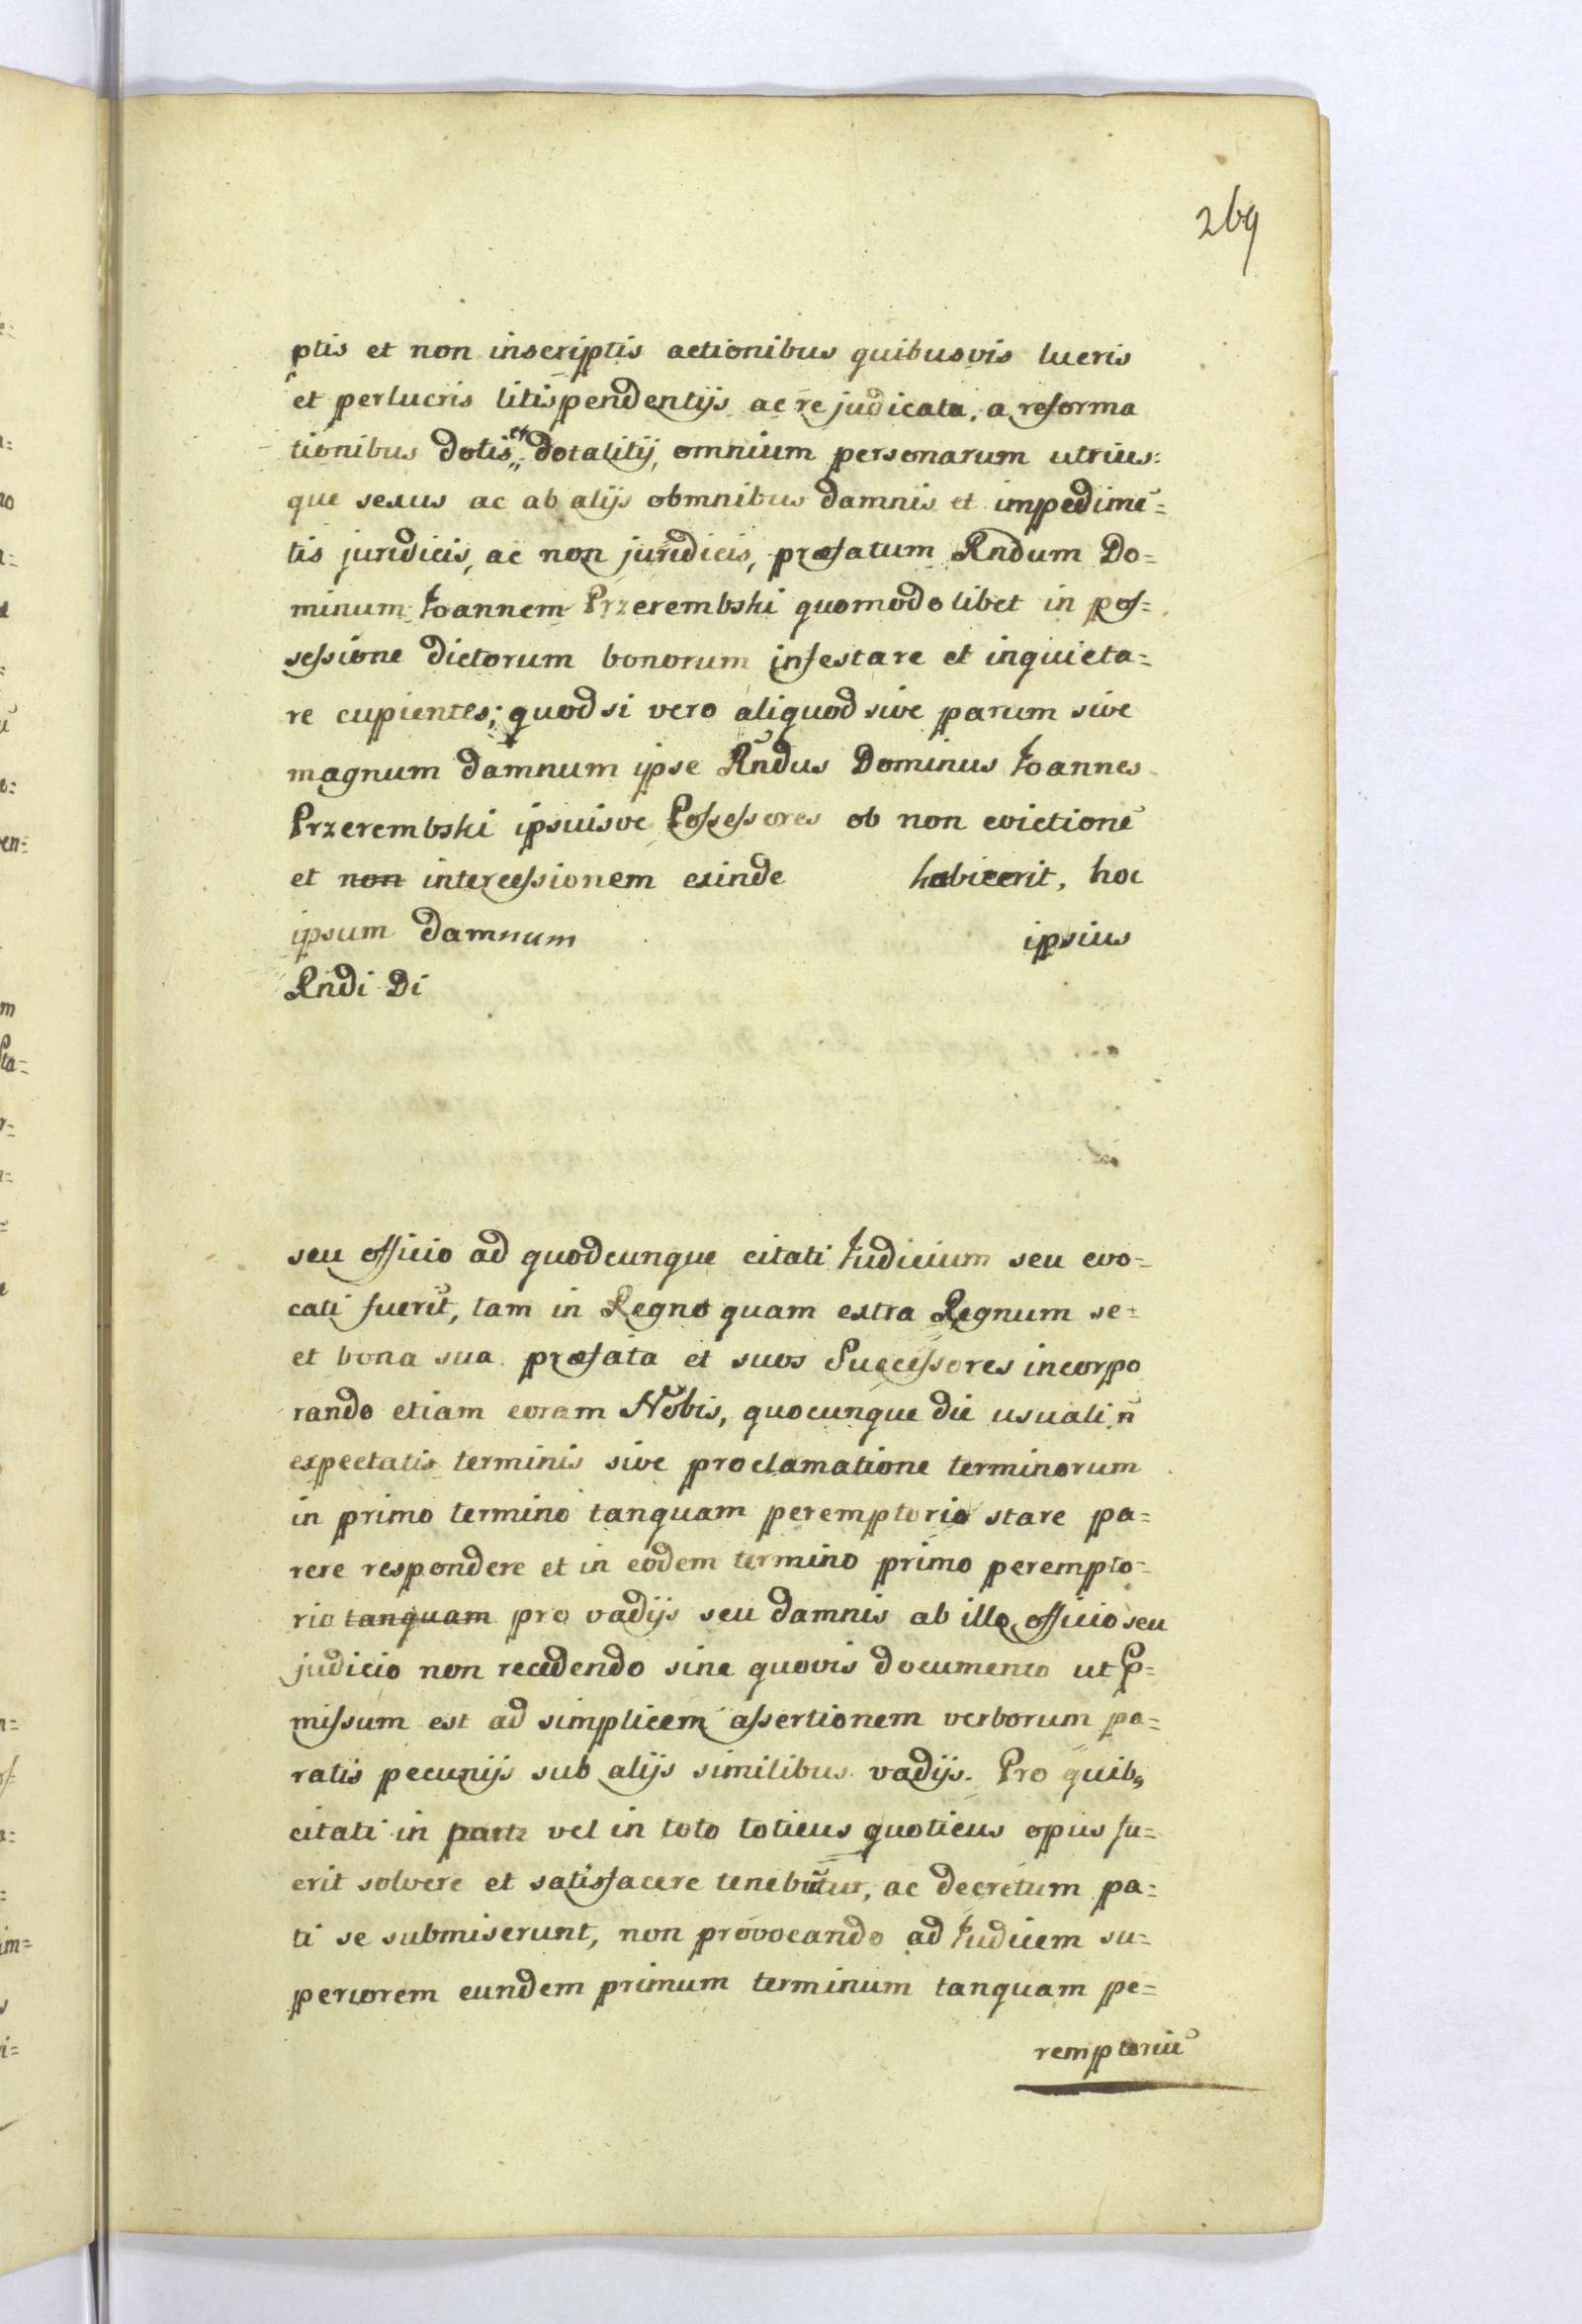 269
ptis et non inscriptis actionibus quibusvis lucris
et perlucris litispendentijs ac re judicata, a reforma
tionibus dotis et dotalitij, omnium personarum utrius=
que sexus ac ab alijs obmnibus damnis et impedimē=
tis juridicis, ac non juridicis, præfatum Rndum Do=
minum Joannem Przerembski quomodolibet in pos=
sessione dictorum bonorum infestare et inquieta=
re cupientes; quodsi vero aliquod sive parum sive
magnum damnum ipse Rndus Dominus Joannes
Przerembski ipsiusve Possessores ob non evictionē
et non intercessionem exinde habuerit, hoc
ipsum damnum ipsius
Rndi Di
seu officio ad quodcunque citati Judicium seu evo=
cati fuerīt, tam in Regno quam extra Regnum se=
et bona sua præfata et suos Successores incorpo
rando etiam coram Nobis, quocunque die usuali n̄
expectatis terminis sive proclamatione terminorum
in primo termino tanquam peremptorio stare pa=
rere respondere et in eodem termino primo perempto=
rio tanquam pro vadijs seu damnis ab illo officio seu
judicio non recedendo sine quovis documento ut p=
missum est ad simplicem assertionem verborum pa=
ratis pecunijs sub alijs similibus vadijs. Pro quib,
citati in parte vel in toto toticus quoticus opus fu=
erit solvere et satisfacere tenebūtur, ac decretum pa=
ti se submiserunt, non provocando ad Judicem su=
periorem eundem primum terminum tanquam pe=
remptoriū